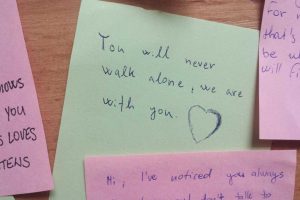 You will never
walk alone, we are
with you.
YOU
LOVES
Hi, I've noticed you always
talk to
For
that's
be
will